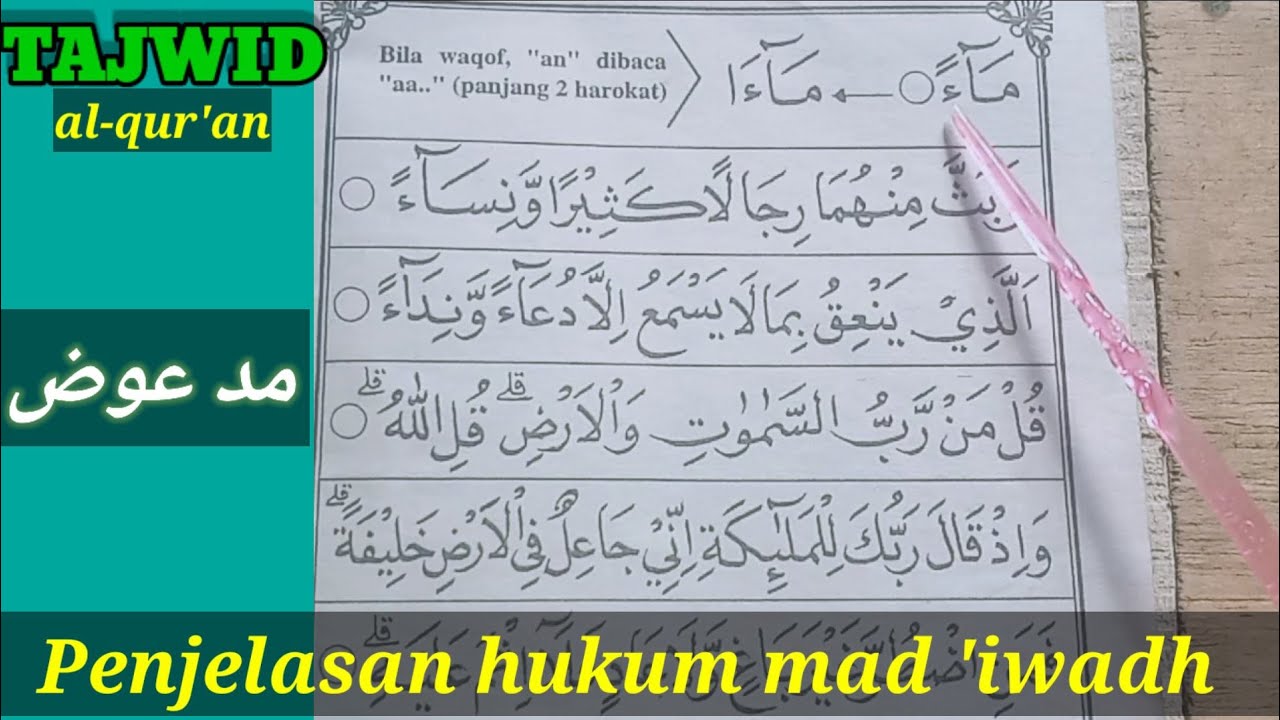 TAJWID
al-qur'an
مد عوض
Bila waqof, "an" dibaca
"aa.." (panjang 2 harokat)
مَآءً ○ ← مَآءَا
وَبَثَّ مِنْهُمَا رِجَالًا كَثِيْرًا وَّنِسَآءً ○
اَلَّذِيْ يَنْعِقُ بِمَا لَا يَسْمَعُ اِلَّا دُعَآءً وَّنِدَآءً ○
قُلْ مَنْ رَّبُّ السَّمٰوٰتِ وَالْاَرْضِۗ قُلِ اللّٰهُۗ ○
وَاِذْ قَالَ رَبُّكَ لِلْمَلٰٓئِكَةِ اِنِّيْ جَاعِلٌ فِى الْاَرْضِ خَلِيْفَةًۗ
Penjelasan hukum mad 'iwadh